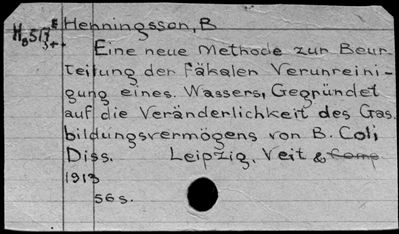 Henningsson, B
Eine neue Methode zur Beur-
teilung der fäkalen Verunreini-
gung eines. Wassers, Gegründet
auf die Veränderlichkeit des Gas.
bildungsvermögens von B. Coli
Diss. Leipzig, Veit & Comp
1913
56 s.